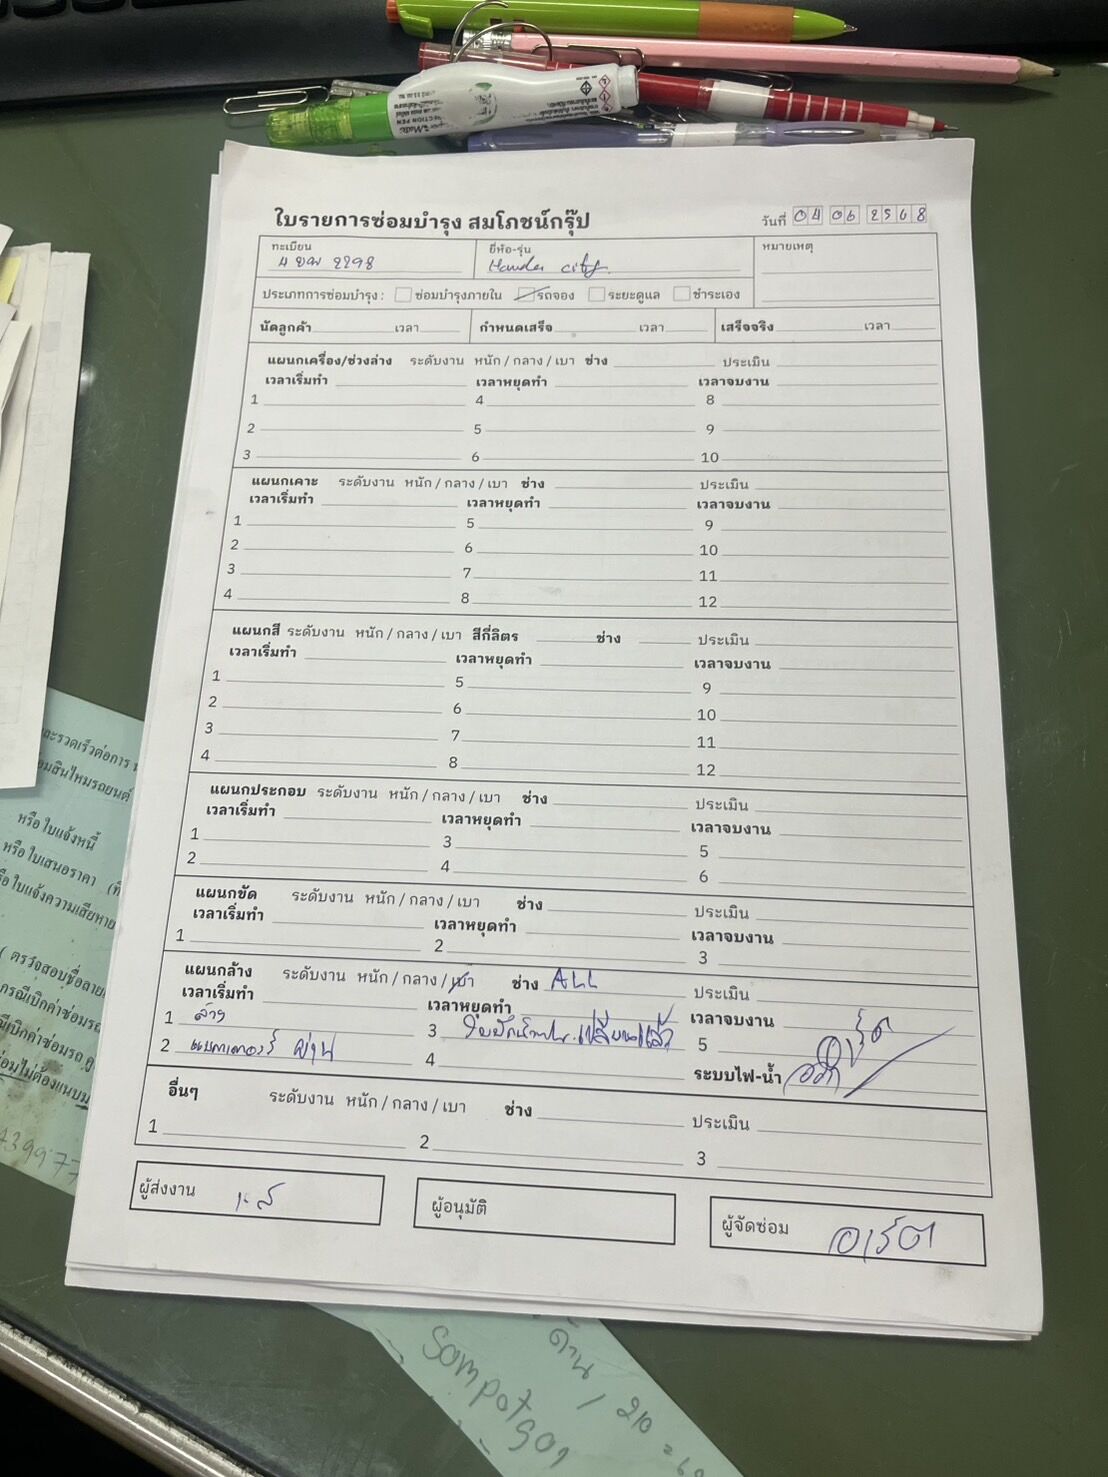 ใบรายการซ่อมบำรุง สมโภชน์กรุ๊ป
วันที่ 04 06 2568
ทะเบียน
ยี่ห้อ-รุ่น
หมายเหตุ
2298
Honda city
ประเภทการซ่อมบำรุง : ซ่อมบำรุงภายใน รถจอง ระยะดูแล ชำระเอง
นัดลูกค้า เวลา กำหนดเสร็จ เวลา เสร็จจริง เวลา
แผนกเครื่อง/ช่วงล่าง ระดับงาน หนัก / กลาง / เบา ช่าง ประเมิน
เวลาเริ่มทำ เวลาหยุดทำ เวลาจบงาน
1 4 8
2 5 9
3 6 10
แผนกเคาะ ระดับงาน หนัก / กลาง / เบา ช่าง ประเมิน
เวลาเริ่มทำ เวลาหยุดทำ เวลาจบงาน
1 5 9
2 6 10
3 7 11
4 8 12
แผนกสี ระดับงาน หนัก / กลาง / เบา สีกี่ลิตร ช่าง ประเมิน
เวลาเริ่มทำ เวลาหยุดทำ เวลาจบงาน
1 5 9
2 6 10
3 7 11
4 8 12
แผนกประกอบ ระดับงาน หนัก / กลาง / เบา ช่าง ประเมิน
เวลาเริ่มทำ เวลาหยุดทำ เวลาจบงาน
1 3 5
2 4 6
แผนกขัด ระดับงาน หนัก / กลาง / เบา ช่าง ประเมิน
เวลาเริ่มทำ เวลาหยุดทำ เวลาจบงาน
1 2 3
แผนกล้าง ระดับงาน หนัก / กลาง / เบา ช่าง ALL ประเมิน
เวลาเริ่มทำ เวลาหยุดทำ เวลาจบงาน
1 ล้าง 3 เปลี่ยนแล้ว 5
2 แบตเตอรี่ ผ่าน 4 ระบบไฟ-น้ำ
อื่นๆ ระดับงาน หนัก / กลาง / เบา ช่าง ประเมิน
1 2 3
ผู้ส่งงาน
ผู้อนุมัติ
ผู้จัดซ่อม อาร์ต
และรวดเร็วต่อการ
อมสินไหมรถยนต์
หรือ ใบแจ้งหนี้
หรือ ใบเสนอราคา
หรือ ใบแจ้งความเสียหาย
( ตรวจสอบชื่อลาย
กรณีเบิกค่าซ่อมรถ
ณีเบิกค่าซ่อมรถ
ซ่อมไม่ต้องแนบ
43997
Sompotgo